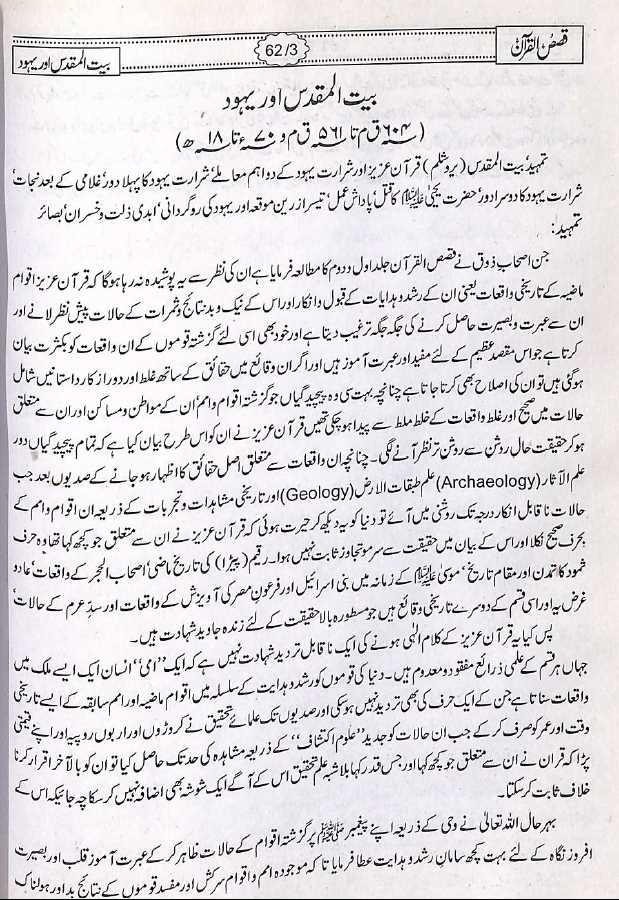 قصص القرآن
62/3
بیت المقدس اور یہود
بیت المقدس اور یہود
(۶۰۴ ق م تا ۵۶۱ ق م و ۷۰ء تا ۱۸ھ)
تمہید، بیت المقدس (یروشلم) قرآن عزیز اور شرارت یہود کے دو اہم معاملے، شرارت یہود کا پہلا دور، غلامی کے بعد نجات،
شرارت یہود کا دوسرا دور، حضرت یحییٰ علیہ السلام کا قتل، پاداش عمل، تیسرا زرین موقعہ اور یہود کی روگردانی، ابدی ذلت و خسران، بصائر
تمہید:
جن اصحاب ذوق نے قصص القرآن جلد اول و دوم کا مطالعہ فرمایا ہے ان کی نظر سے یہ پوشیدہ نہ رہا ہوگا کہ قرآن عزیز اقوام
ماضیہ کے تاریخی واقعات یعنی ان کے رشد و ہدایات کے قبول و انکار اور اس کے نیک و بد نتائج و ثمرات کے حالات پیش نظر لانے اور
ان سے عبرت و بصیرت حاصل کرنے کی جگہ جگہ ترغیب دیتا ہے اور خود بھی اسی لئے گزشتہ قوموں کے ان واقعات کو بکثرت بیان
کرتا ہے جو اس مقصد عظیم کے لئے مفید اور عبرت آموز ہیں اور اگر ان وقائع میں حقائق کے ساتھ غلط اور دور از کار داستانیں شامل
ہوگئی ہیں تو ان کی اصلاح بھی کرتا جاتا ہے چنانچہ بہت سی وہ پیچیدگیاں جو گزشتہ اقوام و امم، ان کے مواطن و مساکن اور ان سے متعلق
حالات میں صحیح اور غلط واقعات کے خلط ملط سے پیدا ہوچکی تھیں قرآن عزیز نے ان کو اس طرح بیان کیا ہے کہ تمام پیچیدگیاں دور
ہو کر حقیقت حال روشن سے روشن تر نظر آنے لگی۔ چنانچہ ان واقعات سے متعلق اصل حقائق کا اظہار ہو جانے کے صدیوں بعد جب
علم الآثار (Archaeology) علم طبقات الارض (Geology) اور تاریخی مشاہدات و تجربات کے ذریعہ ان اقوام و امم کے
حالات ناقابل انکار درجہ تک روشنی میں آئے تو دنیا کو یہ دیکھ کر حیرت ہوئی کہ قرآن عزیز نے ان سے متعلق جو کچھ کہا تھا وہ حرف
بحرف صحیح نکلا اور اس کے بیان میں حقیقت سے سر مو تجاوز ثابت نہیں ہوا۔ رقیم (پیڑا) کی تاریخ ماضی، اصحاب الحجر کے واقعات، عاد و
ثمود کا تمدن اور مقام تاریخ، موسیٰ علیہ السلام کے زمانہ میں بنی اسرائیل اور فرعون مصر کی آویزش کے واقعات اور سد عرم کے حالات،
غرض یہ اور اسی قسم کے دوسرے تاریخی وقائع ہیں جو مسطورہ بالا حقیقت کے لئے زندہ جاوید شہادت ہیں۔
پس کیا یہ قرآن عزیز کے کلام الٰہی ہونے کی ایک ناقابل تردید شہادت نہیں ہے کہ ایک ”امی“ انسان ایک ایسے ملک میں
جہاں ہر قسم کے علمی ذرائع مفقود و معدوم ہیں۔ دنیا کی قوموں کو رشد و ہدایت کے سلسلہ میں اقوام ماضیہ اور امم سابقہ کے ایسے تاریخی
واقعات سناتا ہے جن کے ایک حرف کی بھی تردید نہیں ہو سکی اور صدیوں تک علمائے تحقیق نے کروڑوں اور اربوں روپیہ اور اپنے قیمتی
وقت اور عمر کو صرف کر کے جب ان حالات کو جدید ”علوم اکتشاف“ کے ذریعہ مشاہدہ کی حد تک حاصل کیا تو ان کو بالآخر اقرار کرنا
پڑا کہ قرآن نے ان سے متعلق جو کچھ کہا اور جس قدر کہا بلاشبہ علم تحقیق اس کے آگے ایک شوشہ بھی اضافہ نہیں کر سکا چہ جائیکہ اس کے
خلاف ثابت کر سکتا۔
بہرحال اللہ تعالیٰ نے وحی کے ذریعہ اپنے پیغمبر ﷺ پر گزشتہ اقوام کے حالات ظاہر کر کے عبرت آموز قلب اور بصیرت
افروز نگاہ کے لئے بہت کچھ سامان رشد و ہدایت عطا فرمایا تا کہ موجودہ امم و اقوام سرکش اور مفسد قوموں کے نتائج بد اور ہولناک